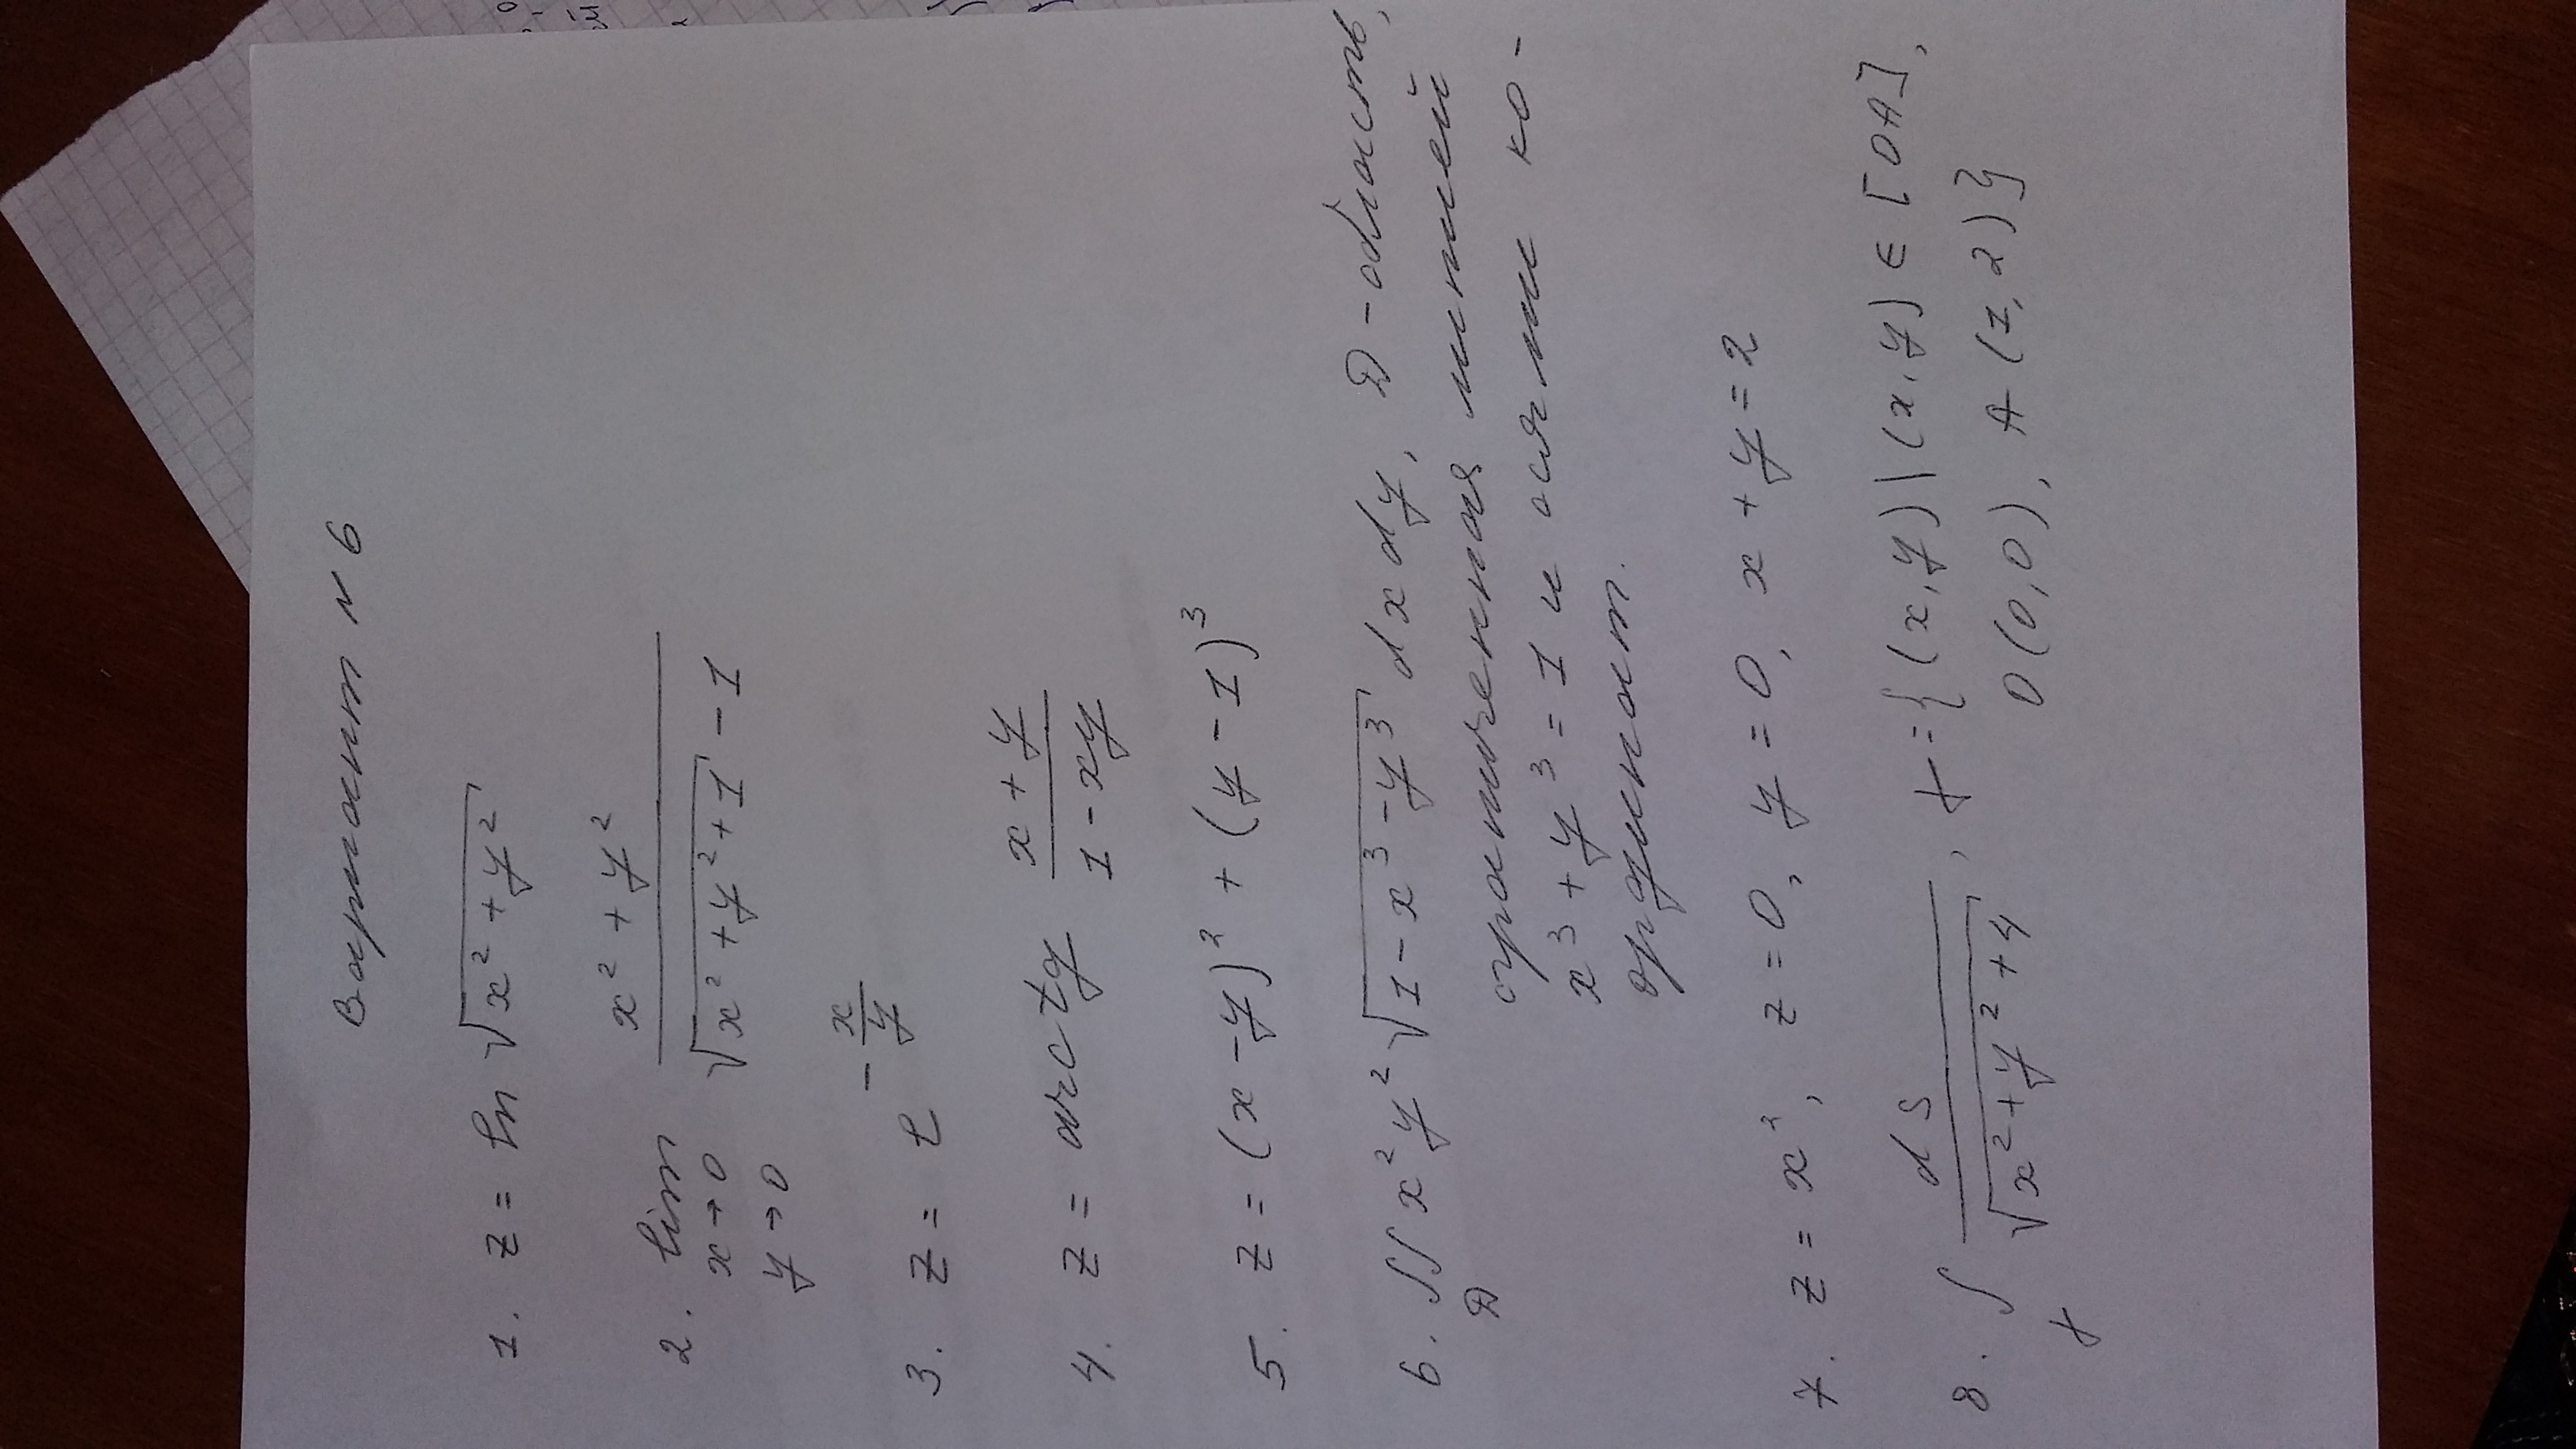 Вариант N 6
1. z = ln √(x² + y²)
2. lim x→0 y→0 (x² + y²) / (√(x² + y² + 1) - 1)
3. z = e^(-x/y)
4. z = arctg (x + y)/(1 - xy)
5. z = (x - y)² + (y - 1)³
6. ∬_D x² y² √(1 - x³ - y³) dx dy, D - область,
ограниченная линией
x³ + y³ = 1 и осями ко-
ординат.
7. z = x², z = 0, y = 0, x + y = 2
8. ∫_γ ds / √(x² + y² + 4), γ = {(x, y) | (x, y) ∈ [OA],
O(0, 0), A(1, 2)}